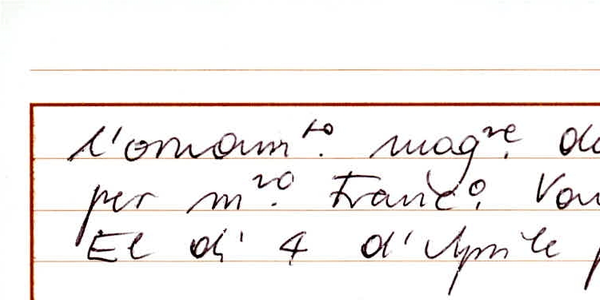 l'ornam.to mag.re
per m.ro Franc.o
Et di' 4 d'Aprile